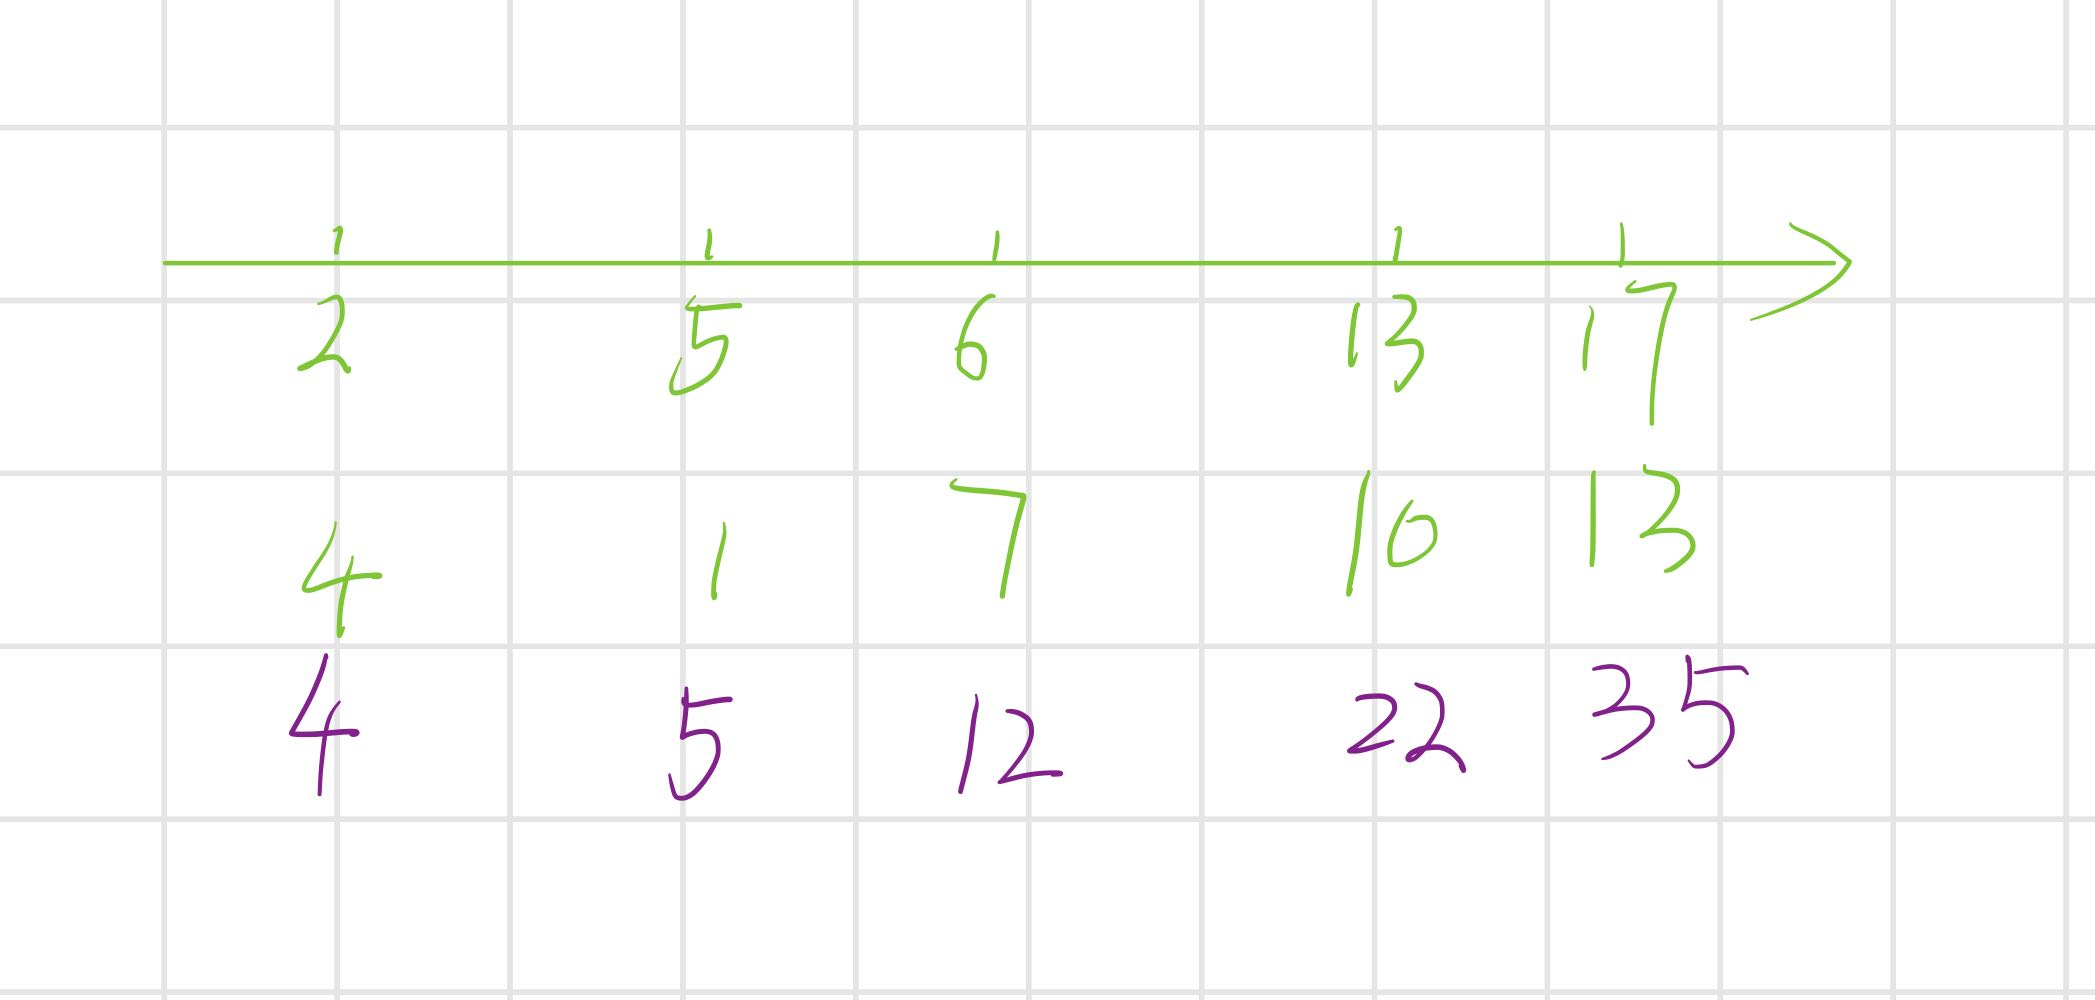 2 5 6 13 17
4 1 7 10 13
4 5 12 22 35